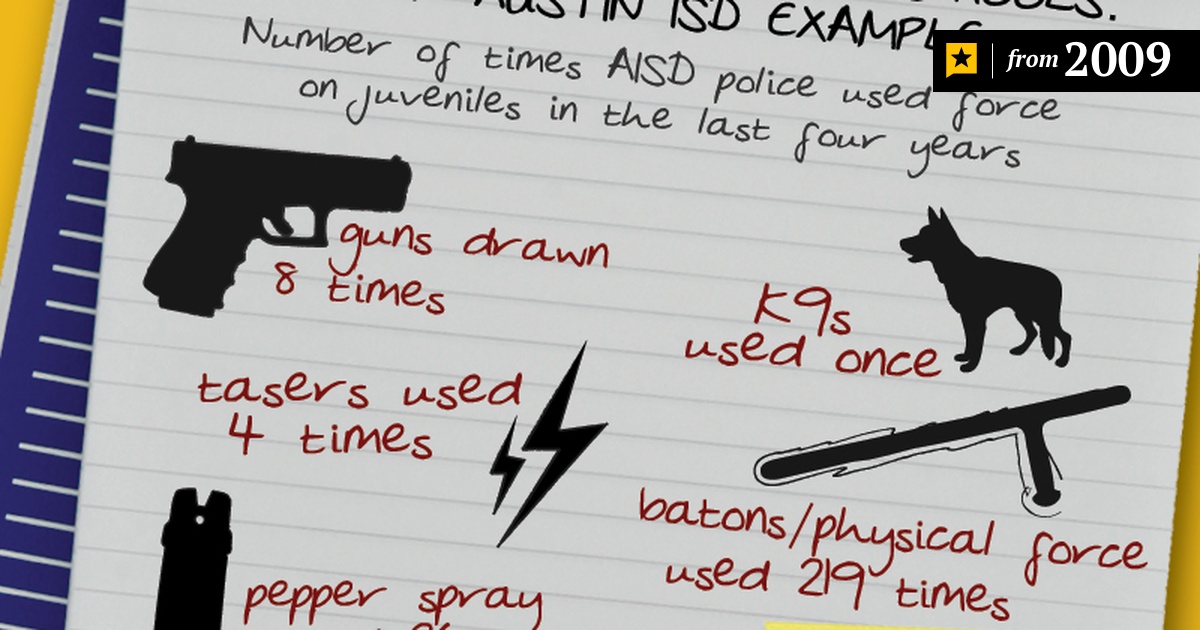 AUSTIN ISD EXAMPLE
from 2009
Number of times AISD police used force
on juveniles in the last four years
guns drawn
8 times
K9s
used once
tasers used
4 times
batons/physical force
used 219 times
pepper spray